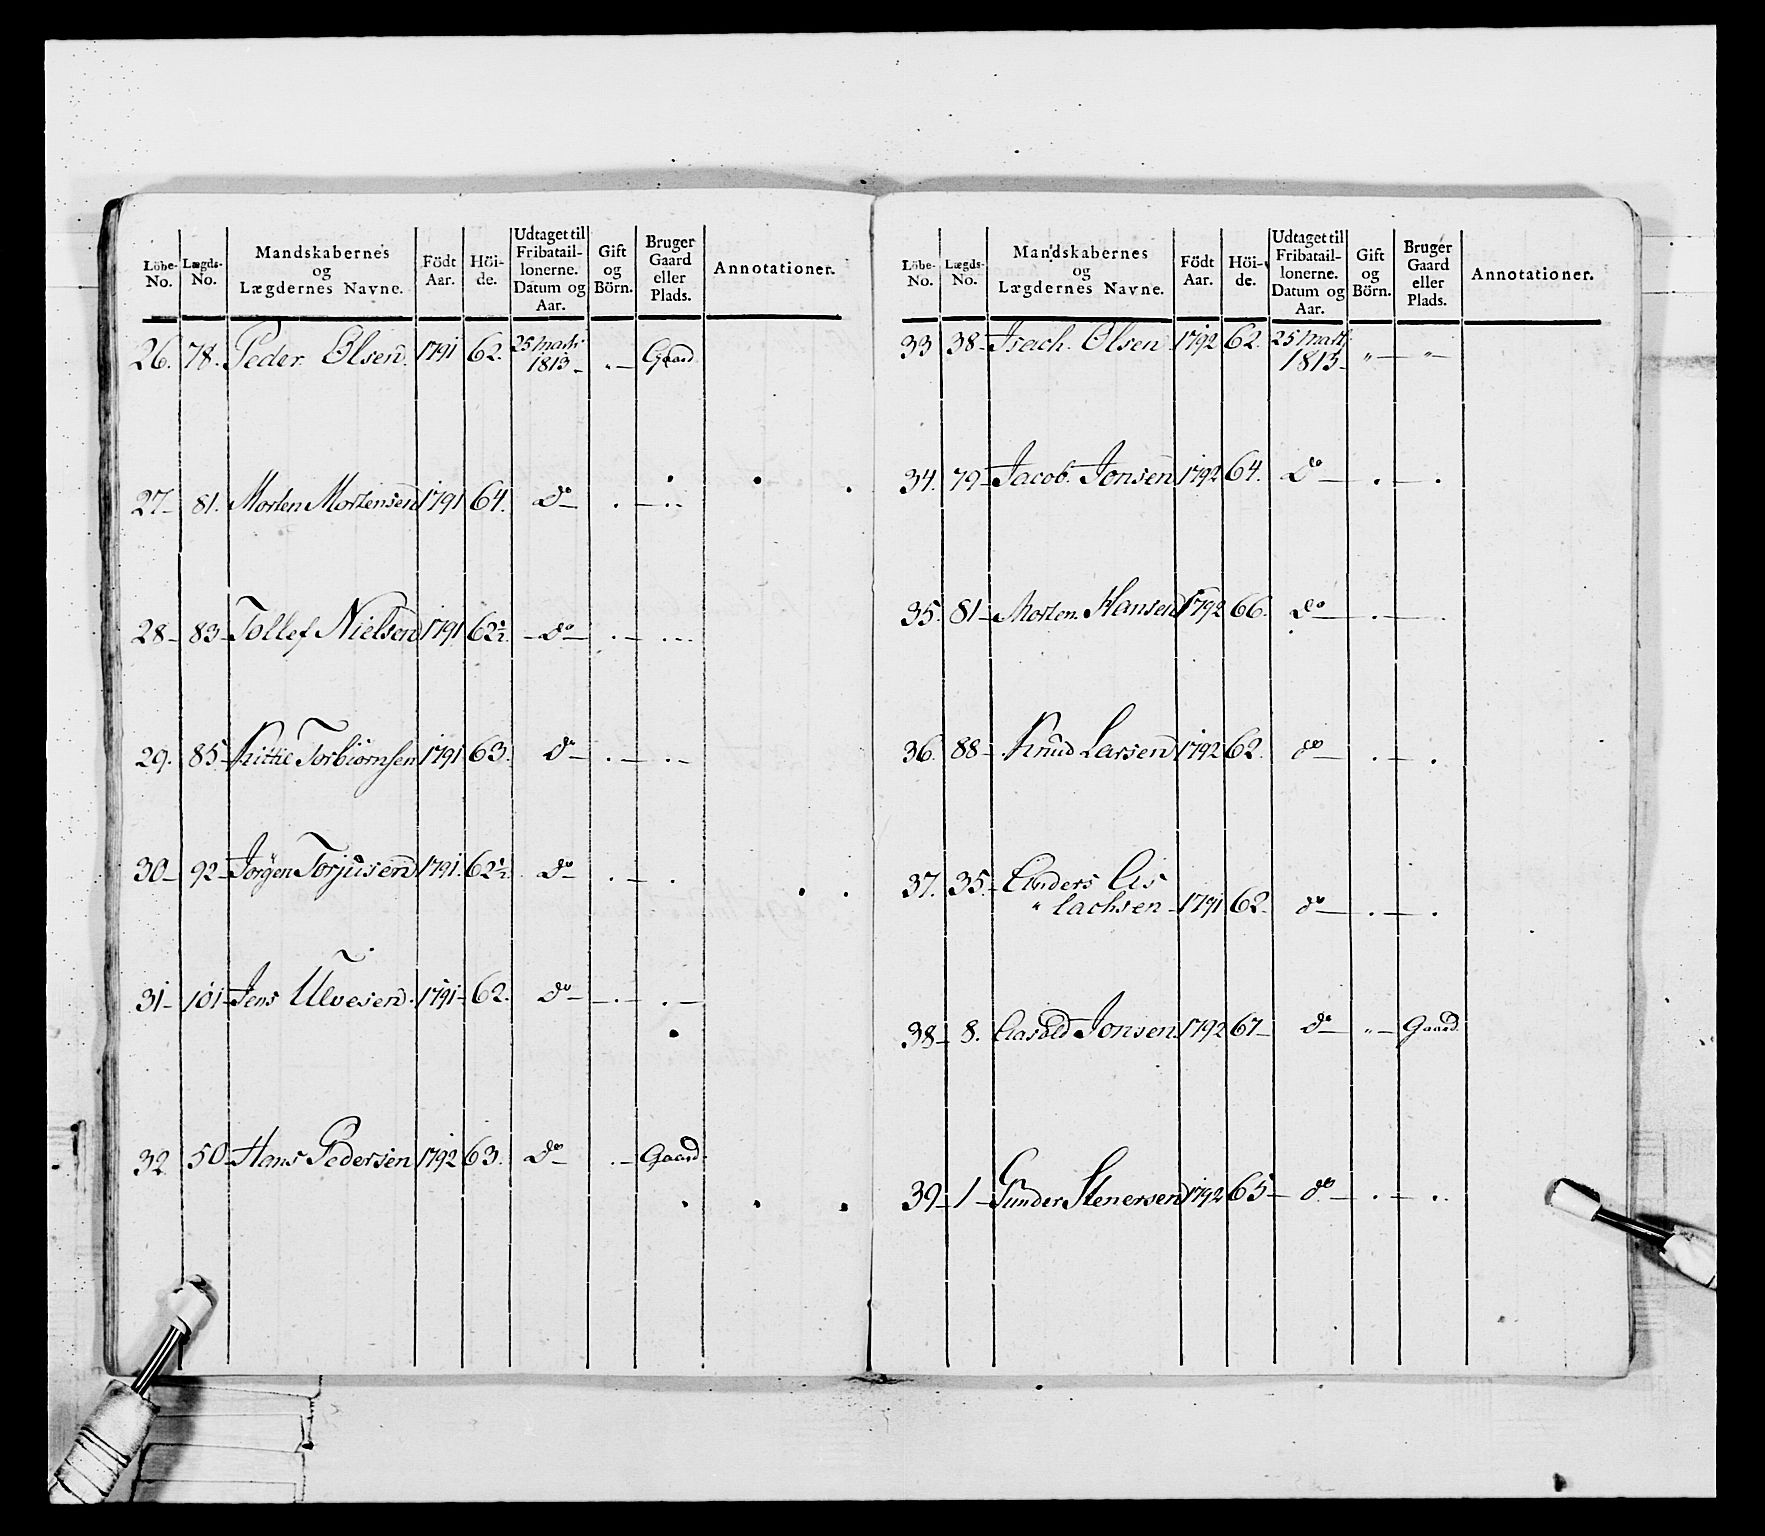 Löbe- No. | Lægds- No. | Mandskabernes og Lægdernes Navne. | Födt Aar. | Höi- de. | Udtaget til Fribatail- lonerne. Datum og Aar. | Gift og Börn. | Bruger Gaard eller Plads. | Annotationer.
26. 78. Peder Olsen. 1791 62. 25 Marti 1813 „ — Gaard
27 — 81. Morten Mortensen 1791 64. do —
28 — 83 — Tollef Nielsen 1791 62½. — do —
29. 85 — Kittil Torbiörnsen 1791 63. do —
30 — 92 — Jörgen Torjusen 1791. 62½. do —
31 — 101 — Jens Ulvesen. 1791 — 62. do —
32 50 — Hans Pedersen 1792 63. do — Gaard.
Löbe- No. | Lægds- No. | Mandskabernes og Lægdernes Navne. | Födt Aar. | Höi- de. | Udtaget til Fribatail- lonerne. Datum og Aar. | Gift og Börn. | Bruger Gaard eller Plads. | Annotationer.
33 38 — Isach Olsen 1792 62. 25 Marti 1813 — „ — „ —
34. 79 — Jacob Jonsen 1792 64. do —
35. 81 — Morten Hansen 1792 66. do —
36. 88 — Knud Larsen 1792 62. do —
37. 35. — Anders As
„ lachsen — 1791 62. do —
38 — 8. Aasold Jonsen 1792 67 — do — „ — Gaard.
39 — 1 — Gunder Stenersen 1792 65 — do —